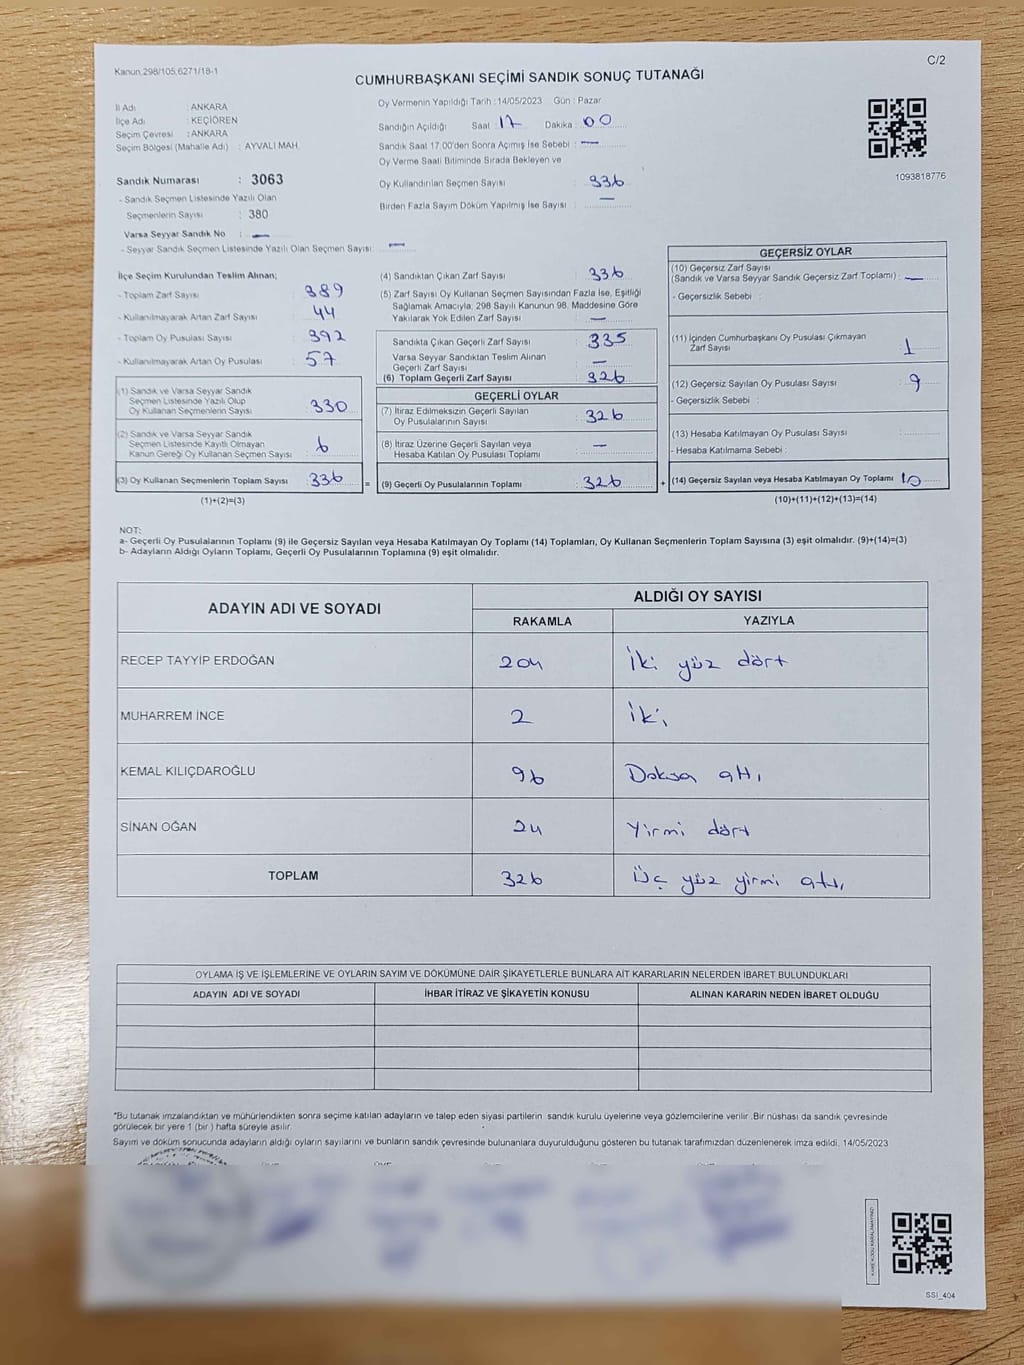 Kanun.298/105,6271/18-1
C/2
CUMHURBAŞKANI SEÇİMİ SANDIK SONUÇ TUTANAĞI
İl Adı : ANKARA
İlçe Adı : KEÇİÖREN
Seçim Çevresi : ANKARA
Seçim Bölgesi (Mahalle Adı) : AYVALI MAH.
Sandık Numarası : 3063
- Sandık Seçmen Listesinde Yazılı Olan
Seçmenlerin Sayısı : 380
Varsa Seyyar Sandık No : —
- Seyyar Sandık Seçmen Listesinde Yazılı Olan Seçmen Sayısı: —
Oy Vermenin Yapıldığı Tarih :14/05/2023 Gün : Pazar
Sandığın Açıldığı Saat : 17 Dakika : 00
Sandık Saat 17.00'den Sonra Açımış İse Sebebi : —
Oy Verme Saati Bitiminde Sırada Bekleyen ve
Oy Kullandırılan Seçmen Sayısı : 336
Birden Fazla Sayım Döküm Yapılmış İse Sayısı : —
1093818776
İlçe Seçim Kurulundan Teslim Alınan;
- Toplam Zarf Sayısı : 389
- Kullanılmayarak Artan Zarf Sayısı : 44
- Toplam Oy Pusulası Sayısı : 392
- Kullanılmayarak Artan Oy Pusulası : 57
(1) Sandık ve Varsa Seyyar Sandık
Seçmen Listesinde Yazılı Olup
Oy Kullanan Seçmenlerin Sayısı : 330
(2) Sandık ve Varsa Seyyar Sandık
Seçmen Listesinde Kayıtlı Olmayan
Kanun Gereği Oy Kullanan Seçmen Sayısı : 6
(3) Oy Kullanan Seçmenlerin Toplam Sayısı : 336
(1)+(2)=(3)
=
(4) Sandıktan Çıkan Zarf Sayısı : 336
(5) Zarf Sayısı Oy Kullanan Seçmen Sayısından Fazla İse, Eşitliği
Sağlamak Amacıyla; 298 Sayılı Kanunun 98. Maddesine Göre
Yakılarak Yok Edilen Zarf Sayısı : —
Sandıkta Çıkan Geçerli Zarf Sayısı : 335
Varsa Seyyar Sandıktan Teslim Alınan
Geçerli Zarf Sayısı : —
(6) Toplam Geçerli Zarf Sayısı : 326
GEÇERLİ OYLAR
(7) İtiraz Edilmeksizin Geçerli Sayılan
Oy Pusulalarının Sayısı : 326
(8) İtiraz Üzerine Geçerli Sayılan veya
Hesaba Katılan Oy Pusulası Toplamı : —
(9) Geçerli Oy Pusulalarının Toplamı : 326
+
GEÇERSİZ OYLAR
(10) Geçersiz Zarf Sayısı
(Sandık ve Varsa Seyyar Sandık Geçersiz Zarf Toplamı) : —
- Geçersizlik Sebebi :
(11) İçinden Cumhurbaşkanı Oy Pusulası Çıkmayan
Zarf Sayısı : 1
(12) Geçersiz Sayılan Oy Pusulası Sayısı : 9
- Geçersizlik Sebebi :
(13) Hesaba Katılmayan Oy Pusulası Sayısı :
- Hesaba Katılmama Sebebi :
(14) Geçersiz Sayılan veya Hesaba Katılmayan Oy Toplamı : 10
(10)+(11)+(12)+(13)=(14)
NOT:
a- Geçerli Oy Pusulalarının Toplamı (9) ile Geçersiz Sayılan veya Hesaba Katılmayan Oy Toplamı (14) Toplamları, Oy Kullanan Seçmenlerin Toplam Sayısına (3) eşit olmalıdır. (9)+(14)=(3)
b- Adayların Aldığı Oyların Toplamı, Geçerli Oy Pusulalarının Toplamına (9) eşit olmalıdır.
ADAYIN ADI VE SOYADI ALDIĞI OY SAYISI
RAKAMLA YAZIYLA
RECEP TAYYİP ERDOĞAN 204 İki yüz dört
MUHARREM İNCE 2 İki
KEMAL KILIÇDAROĞLU 96 Doksa altı
SİNAN OĞAN 24 Yirmi dört
TOPLAM 326 Üç yüz yirmi altı
OYLAMA İŞ VE İŞLEMLERİNE VE OYLARIN SAYIM VE DÖKÜMÜNE DAİR ŞİKAYETLERLE BUNLARA AİT KARARLARIN NELERDEN İBARET BULUNDUKLARI
ADAYIN ADI VE SOYADI İHBAR İTİRAZ VE ŞİKAYETİN KONUSU ALINAN KARARIN NEDEN İBARET OLDUĞU
*Bu tutanak imzalandıktan ve mühürlendikten sonra seçime katılan adayların ve talep eden siyasi partilerin sandık kurulu üyelerine veya gözlemcilerine verilir. Bir nüshası da sandık çevresinde
görülecek bir yere 1 (bir) hafta süreyle asılır.
Sayım ve döküm sonucunda adayların aldığı oyların sayılarını ve bunların sandık çevresinde bulunanlara duyurulduğunu gösteren bu tutanak tarafımızdan düzenlenerek imza edildi. 14/05/2023
SSI_404